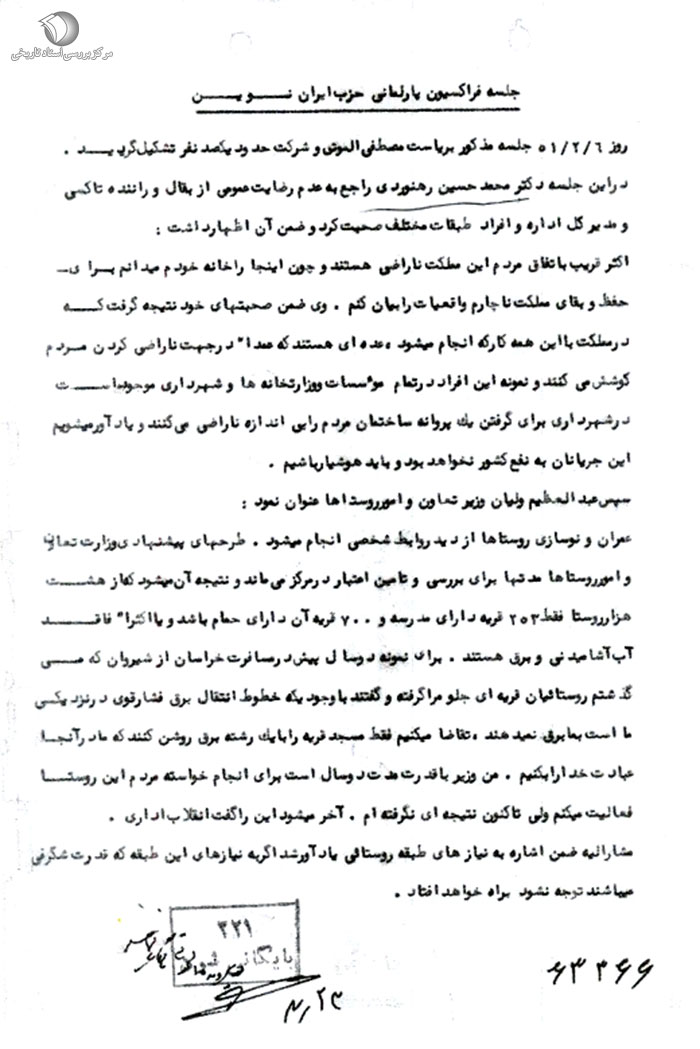 مرکز بررسی اسناد تاریخی
جلسه فراکسیون پارلمانی حزب ایران نــویــن
روز ۵۱/۲/۶ جلسه مذکور بریاست مصطفی الموتی و شرکت حدود یکصد نفر تشکیل گردیــد .
در این جلسه دکتر محمد حسین رهنوردی راجع به عدم رضایت عمومی از بقال و راننده تاکسی
و مدیر کل اداره و افراد طبقات مختلف صحبت کرد و ضمن آن اظهار داشت :
اکثر قریب باتفاق مردم این مملکت ناراضی هستند و چون اینجا را خانه خودم میدانم بــرای
حفظ و بقای مملکت ناچارم واقعیات را بیان کنم . وی ضمن صحبتهای خود نتیجه گرفت کــه
در مملکت با این همه کار که انجام میشود عده ای هستند که عمدا" در جهت ناراضی کردن مــردم
کوشش می کنند و نمونه این افراد در تمام مؤسسات و وزارتخانه ها و شهرداری موجود اســت
در شهرداری برای گرفتن یك پروانه ساختمان مردم را بی اندازه ناراضی می کنند و یادآور میشویم
این جریانان به نفع کشور نخواهد بود و باید هوشیار باشیم .
سپس عبدالعظیم ولیان وزیر تعاون و امور روستاها عنوان نمود :
عمران و نوسازی روستاها از دید روابط شخصی انجام میشود . طرحهای پیشنهادی وزارت تعاون
و امور روستاها مدتها برای بررسی و تامین اعتبار در مرکز می ماند و نتیجه آن میشود که از هشــت
هزار روستا فقط ۲۵۳ قریه دارای مدرسه و ۷۰۰ قریه آن دارای حمام باشد و یا اکثرا" فاقــد
آب آشامیدنی و برق هستند . برای نمونه دو سال پیش در مسافرت خراسان از شیروان که مــی
گذشتم روستائیان قریه ای جلو مرا گرفته و گفتند با وجود یکه خطوط انتقال برق فشار قوی در نزدیکی
ما است بما برق نمید هند ، تقاضا میکنیم فقط مسجد قریه را با یك رشته برق روشن کنند که ما در آنجا
عبادت خدا را بکنیم . من وزیر با قدرت مدت دو سال است برای انجام خواسته مردم این روستــا
فعالیت میکنم ولی تاکنون نتیجه ای نگرفته ام . آخر میشود این را گفت انقلاب اداری .
مشارالیه ضمن اشاره به نیاز های طبقه روستائی یادآور شد اگر به نیازهای این طبقه که قدرت شگرفی
میباشند توجه نشود براه خواهد افتاد .
۳۲۱
بایگانی شود
۲۳/۲
۶۳۳۶۶